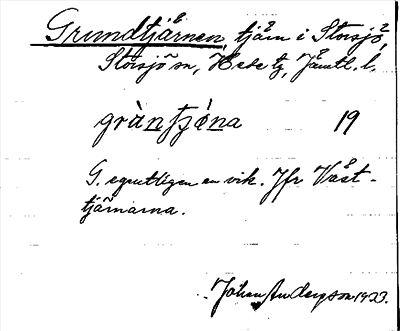 Grundtjärnen, tjärn i Storsjö,
Storsjö sn, Hede tg, Jämtl. l.
gràntʃǿna 19
G. egentligen en vik. Jfr Väst-
tjärnarna.
Johan Anderson 1933.